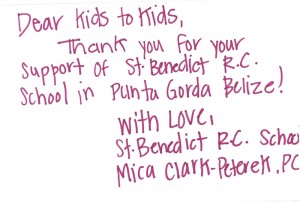 Dear Kids to Kids,
Thank you for your
support of St. Benedict R.C.
School in Punta Gorda Belize!
With Love,
St. Benedict R.C. School
Mica Clark-Peterek, PC